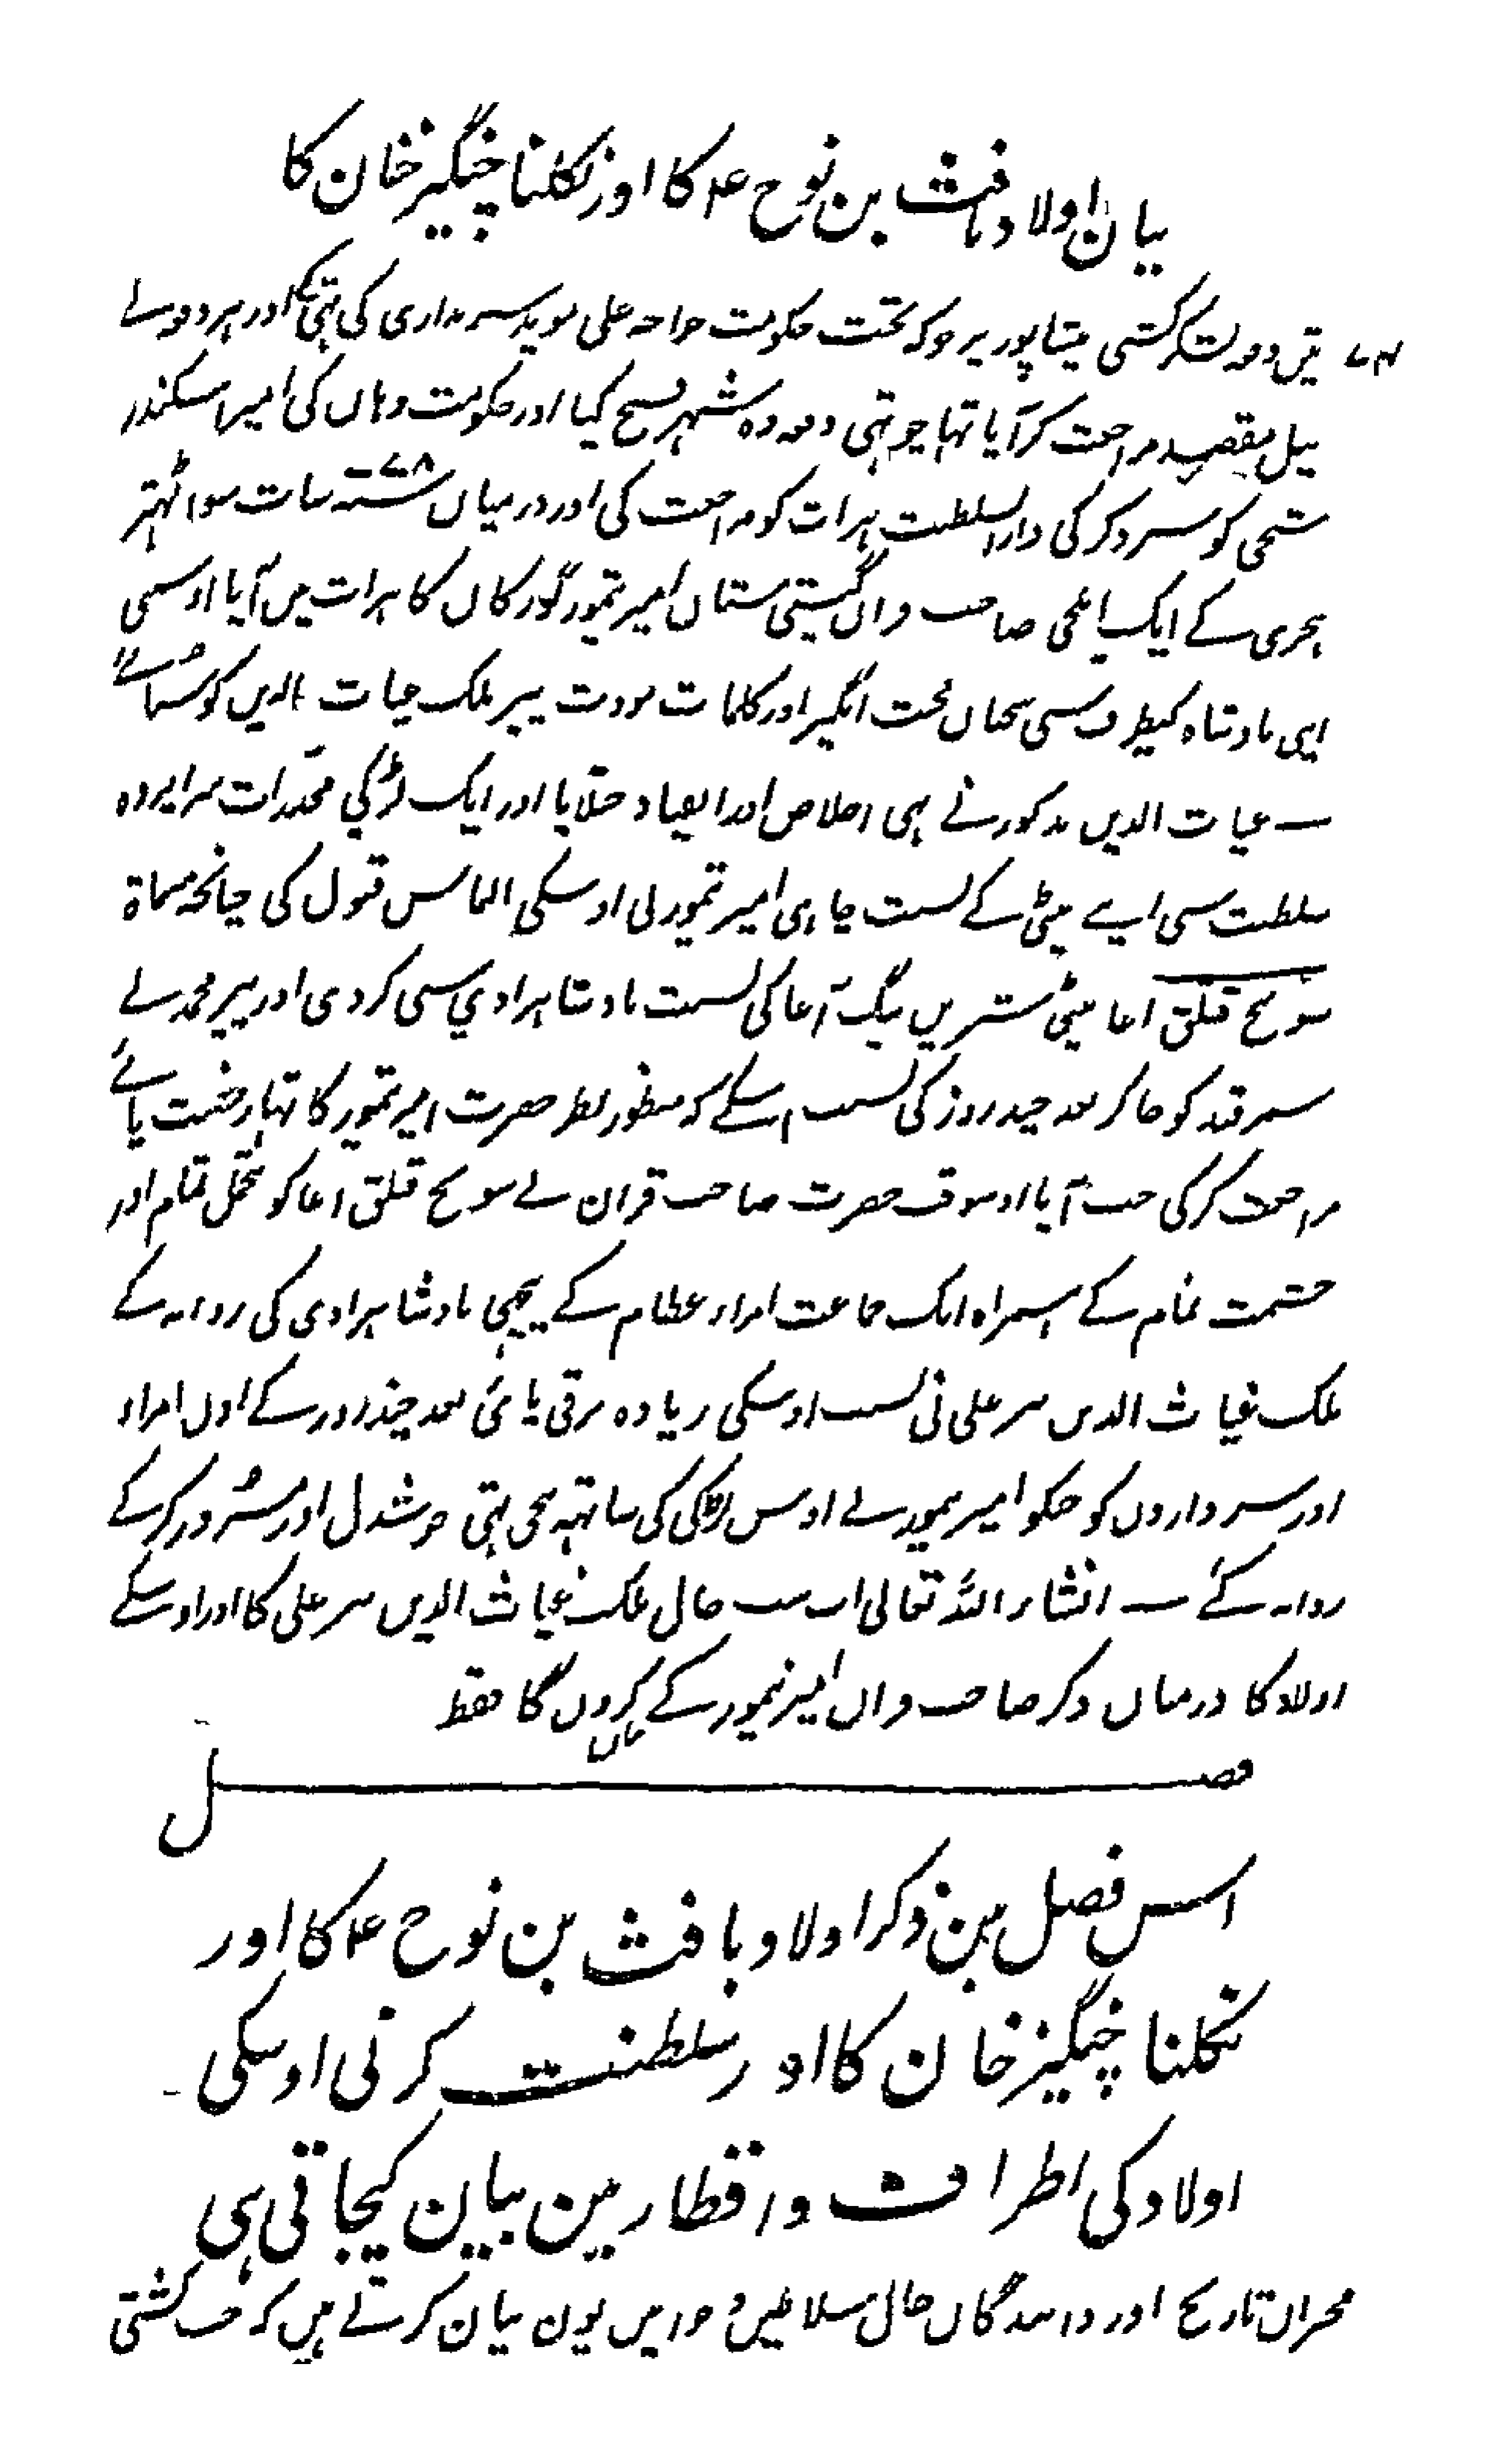 بیان اولاد یافث بن نوح ع کا اور نکلنا چنگیز خان کا
تیں دفعہ لشکر کشی نیشاپور پر جو کہ تحت حکومت خواجہ علی موید سربداری کی تہی اور ہر دفعہ بے
نیل مقصد مراجعت کر آیا تہا چوتہی دفعہ وہ شہر فتح کیا اور حکومت وہاں کی امیر اسکندر
شیخی کو سپرد کر کی دار السلطنت ہرات کو مراجعت کی اور درمیاں ۷۷۸ سنہ سات سو اٹہتر
ہجری کے ایک ایلچی صاحب قران گیتی ستاں امیر تیمور گورکاں کا ہرات میں آیا اوسی
اپنی بادشاہ کیطرف سی سخناں محبت انگیز اور کلمات مودت ملک غیاث الدیں کو سُنائے
ــ غیاث الدیں مذکور نے بہی اخلاص اور انقیاد جتلایا اور ایک لڑکی مخدّرات سراپردہ
سلطنت سی اپنے بیٹی کے نسبت چاہی امیر تیمور نی اوسکی التماس قبول کی چنانچہ مسماۃ
سونج قتلق آغا بیٹی شیریں بیگ آغا کی نسبت بادشاہزادی سی کر دی اور پیر محمد نے
سمرقند کو جا کر بعد چند روز کی بسبب اسکے کہ منظور نظر حضرت امیر تیمور کا تہا رخصت پائے
مراجعت کر کی جب آیا اوسوقت حضرت صاحب قران نے سونج قتلق آغا کو تجمّل تمام اور
حشمت تمام کے ہمراہ ایک جماعت امراء عظام کے پیچہی بادشاہزادی کی روانہ کے
ملک غیاث الدیں پیر علی نی نسبت اوسکی زیادہ ترقی پائی بعد چند روز کے اول امراء
اور سرداروں کو جنکو امیر تیمور نے اوس لڑکی کی ساتہہ بہیجی تہی خوشدل اور مسُرور کر کے
روانہ کئے ــ انشاء اللہ تعالی اب سب حال ملک غیاث الدیں پیر علی کا اور اوسکے
اولاد کا درمیاں ذکر صاحب قراں امیر تیمور کے بیاں کروں گا فقط
فصل
اس فصل مین ذکر اولاد یافث بن نوح ع کا اور
نکلنا چنگیز خان کا اور سلطنت کرنی اوسکی
اولاد کی اطراف و اقطار مین بیان کیجاتی ہی
مخبران تاریخ اور دانندگاں حال سلاطیں و خوانیں یوں بیان کرتے ہیں کہ جب کشتی